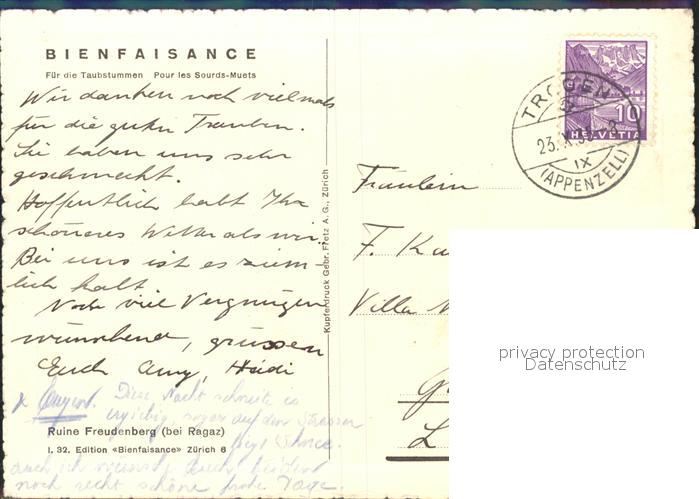 BIENFAISANCE
Für die Taubstummen Pour les Sourds-Muets
Wir danken noch vielmals
für die guten Trauben.
Sie haben uns sehr
geschmeckt.
Hoffentlich habt Ihr
schöneres Wetter als wir.
Bei uns ist es ziem-
lich kalt.
Noch viel Vergnügen
wünschend, grüssen
Euch Amy, Heidi
Diese Nacht schneite es
sogar auf den Strassen
liegt Schnee.
Ruine Freudenberg (bei Ragaz)
I. 32. Edition «Bienfaisance» Zürich 6
auch ich wünsche Euch
noch recht schöne frohe Tage.
Kupferdruck Gebr. Fretz A. G., Zürich
TROGEN
23. X.
IX
(APPENZELL)
10
HELVETIA
Fräulein
F.
Villa
privacy protection
Datenschutz